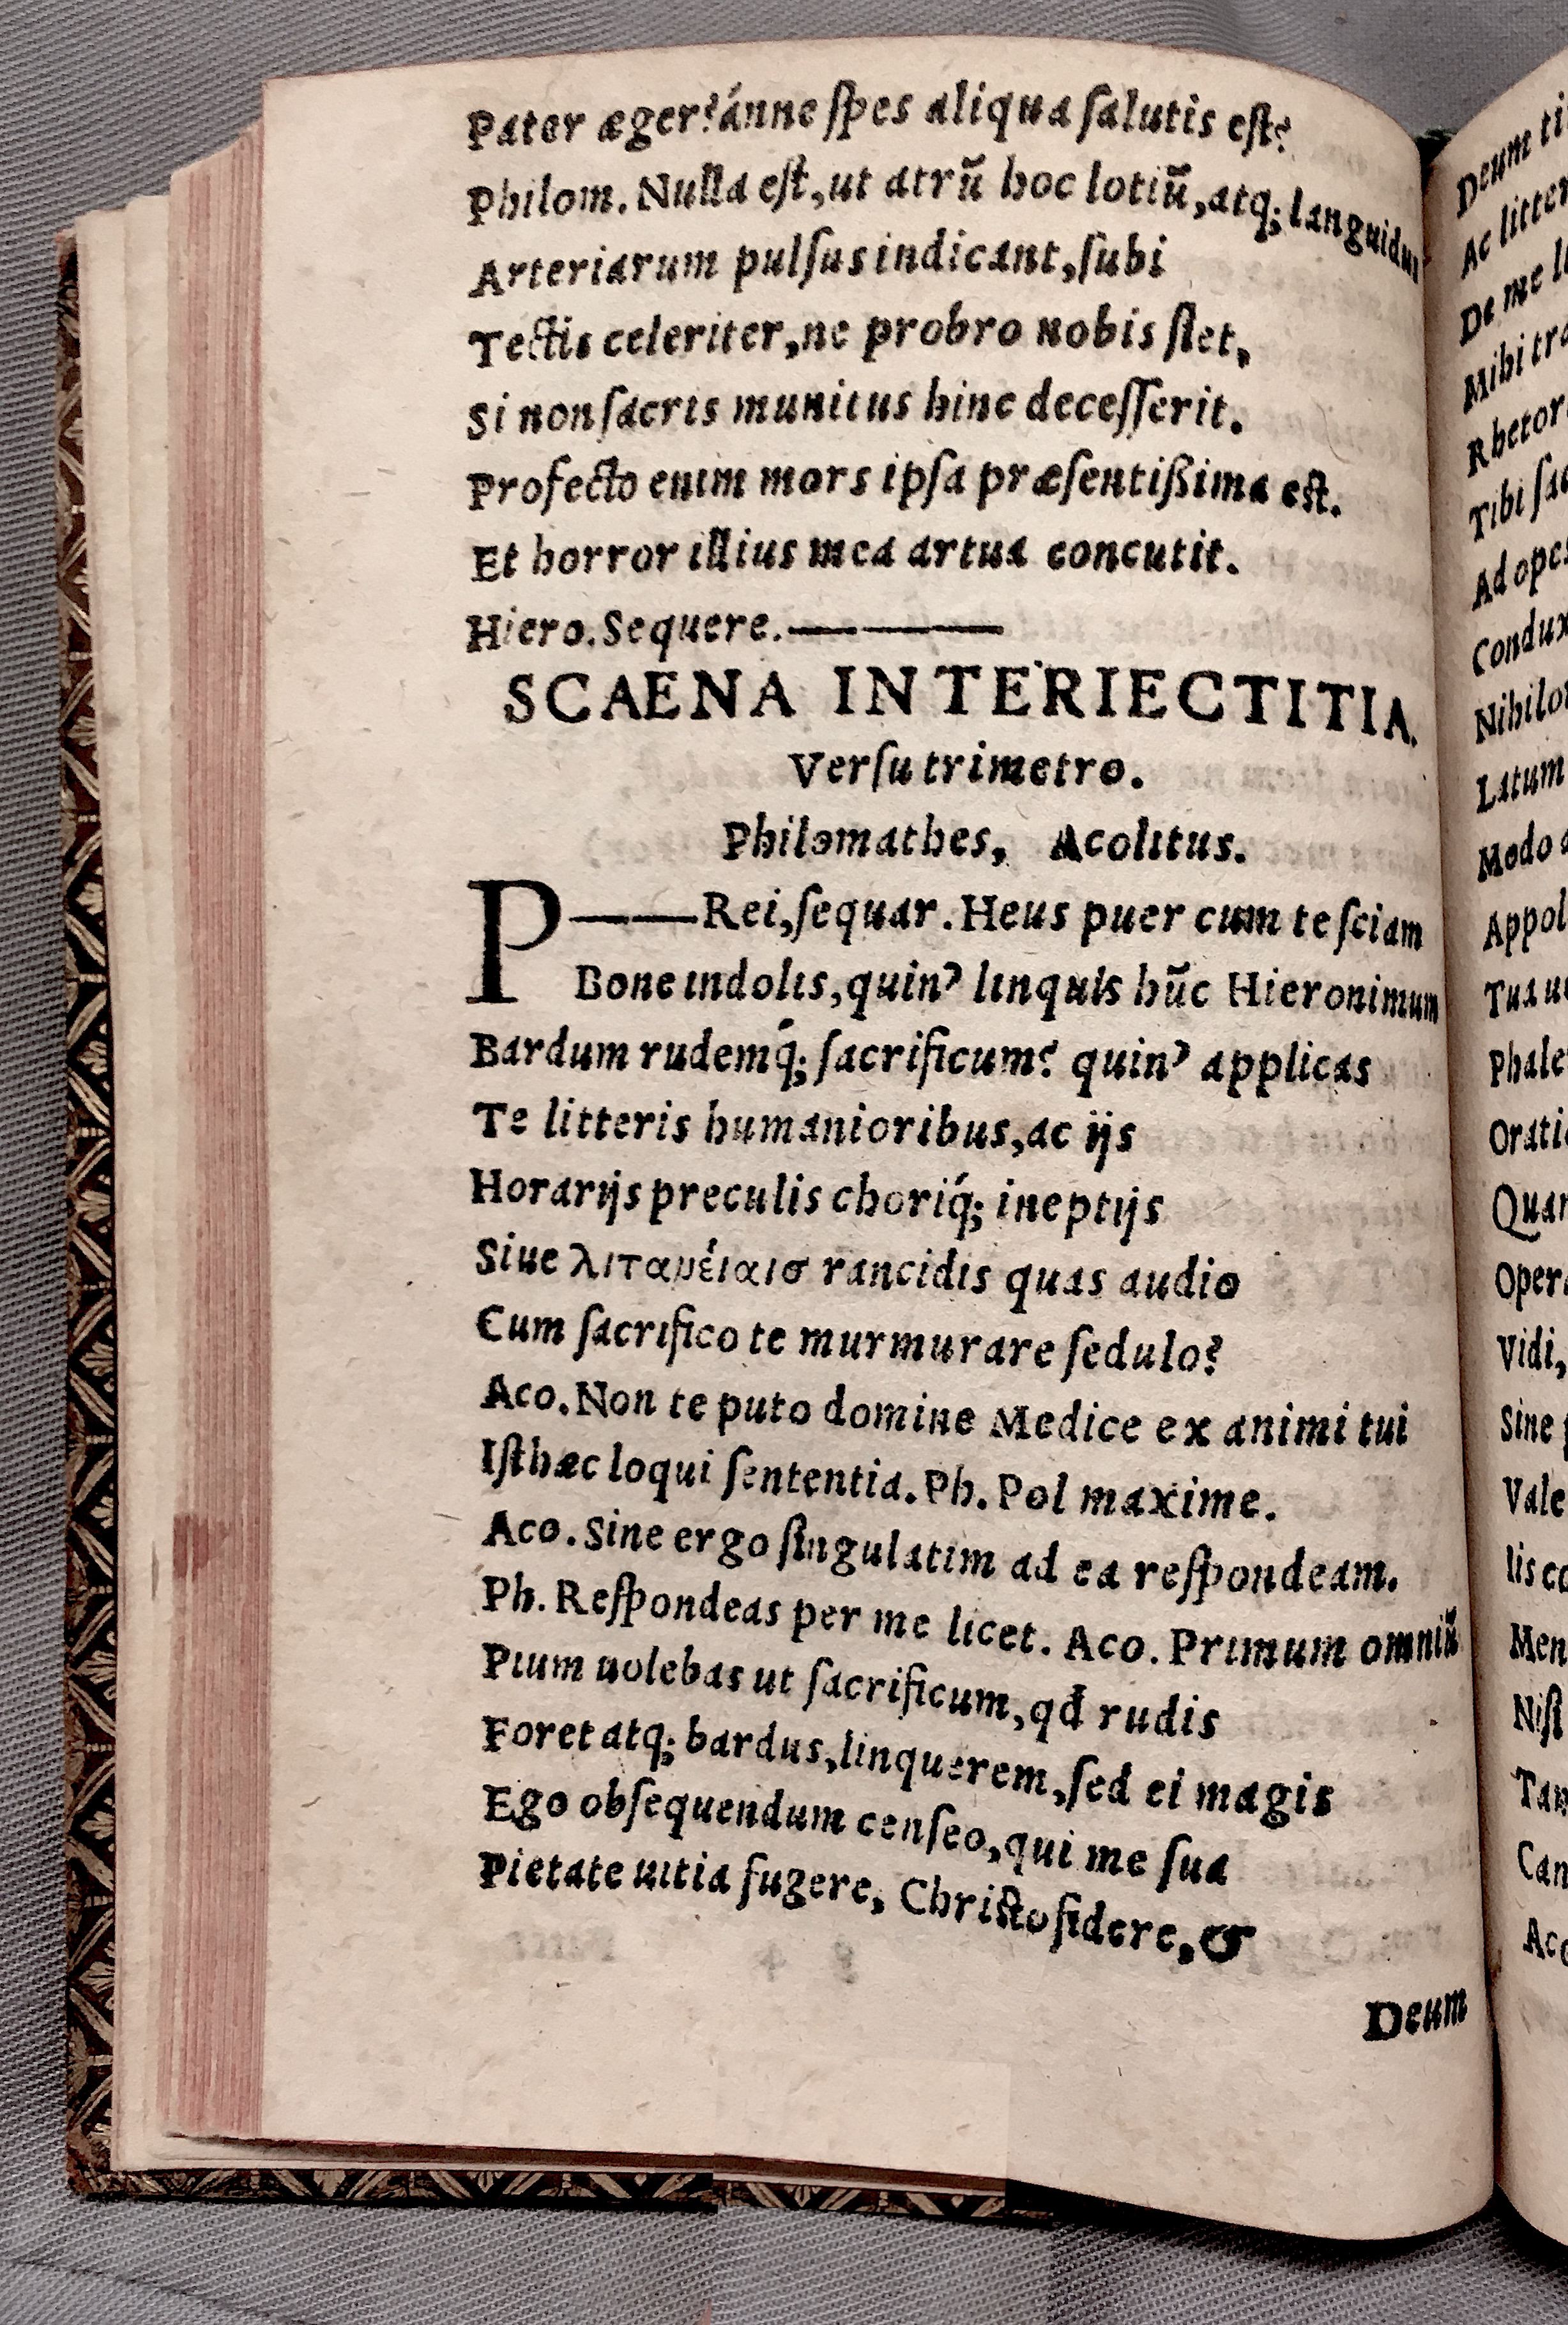 Pater æger?ánne ſpes aliqua ſalutis eſt?
Philom. Nulla eſt,ut atrũ hoc lotiũ,atq; languidus
Arteriarum pulſus indicant,ſubi
Tectis celeriter,ne probro nobis ſiet,
Si non ſacris munitus hinc deceſſerit.
Profecto enim mors ipſa præſentißima eſt.
Et horror illius mea artua concutit.
Hiero. Sequere.————
SCAENA INTERIECTITIA.
Verſu trimetro.
Philomathes, Acolitus.
P——Rei,ſequar. Heus puer cum te ſciam
Bone indolis,quin' linquis hũc Hieronimum
Bardum rudemq́; ſacrificum? quin' applicas
Te litteris humanioribus,ac ijs
Horarijs preculis choriq́; ineptijs
Siue λιτανέιαισ rancidis quas audio
Cum ſacrifico te murmurare ſedulo?
Aco. Non te puto domine Medice ex animi tui
Iſthæc loqui ſententia. Ph. Pol maxime.
Aco. Sine ergo ſingulatim ad ea reſpondeam.
Ph. Reſpondeas per me licet. Aco. Primum omniũ
Pium uolebas ut ſacrificum,qđ rudis
Foret atq; bardus,linquerem,ſed ei magis
Ego obſequendum cenſeo,qui me ſua
Pietate uitia fugere, Chriſto fidere,&
Deum
Deum ti
Ac litter
De me l
Mihi tra
Rhetor
Tibi ſa
Ad ope
Condux
Nihilo
Latum
Modo
Appol
Tua u
Phale
Orati
Quar
Oper
Vidi,
Sine
Vale
lis co
Men
Niſi
Tan
Can
Aco